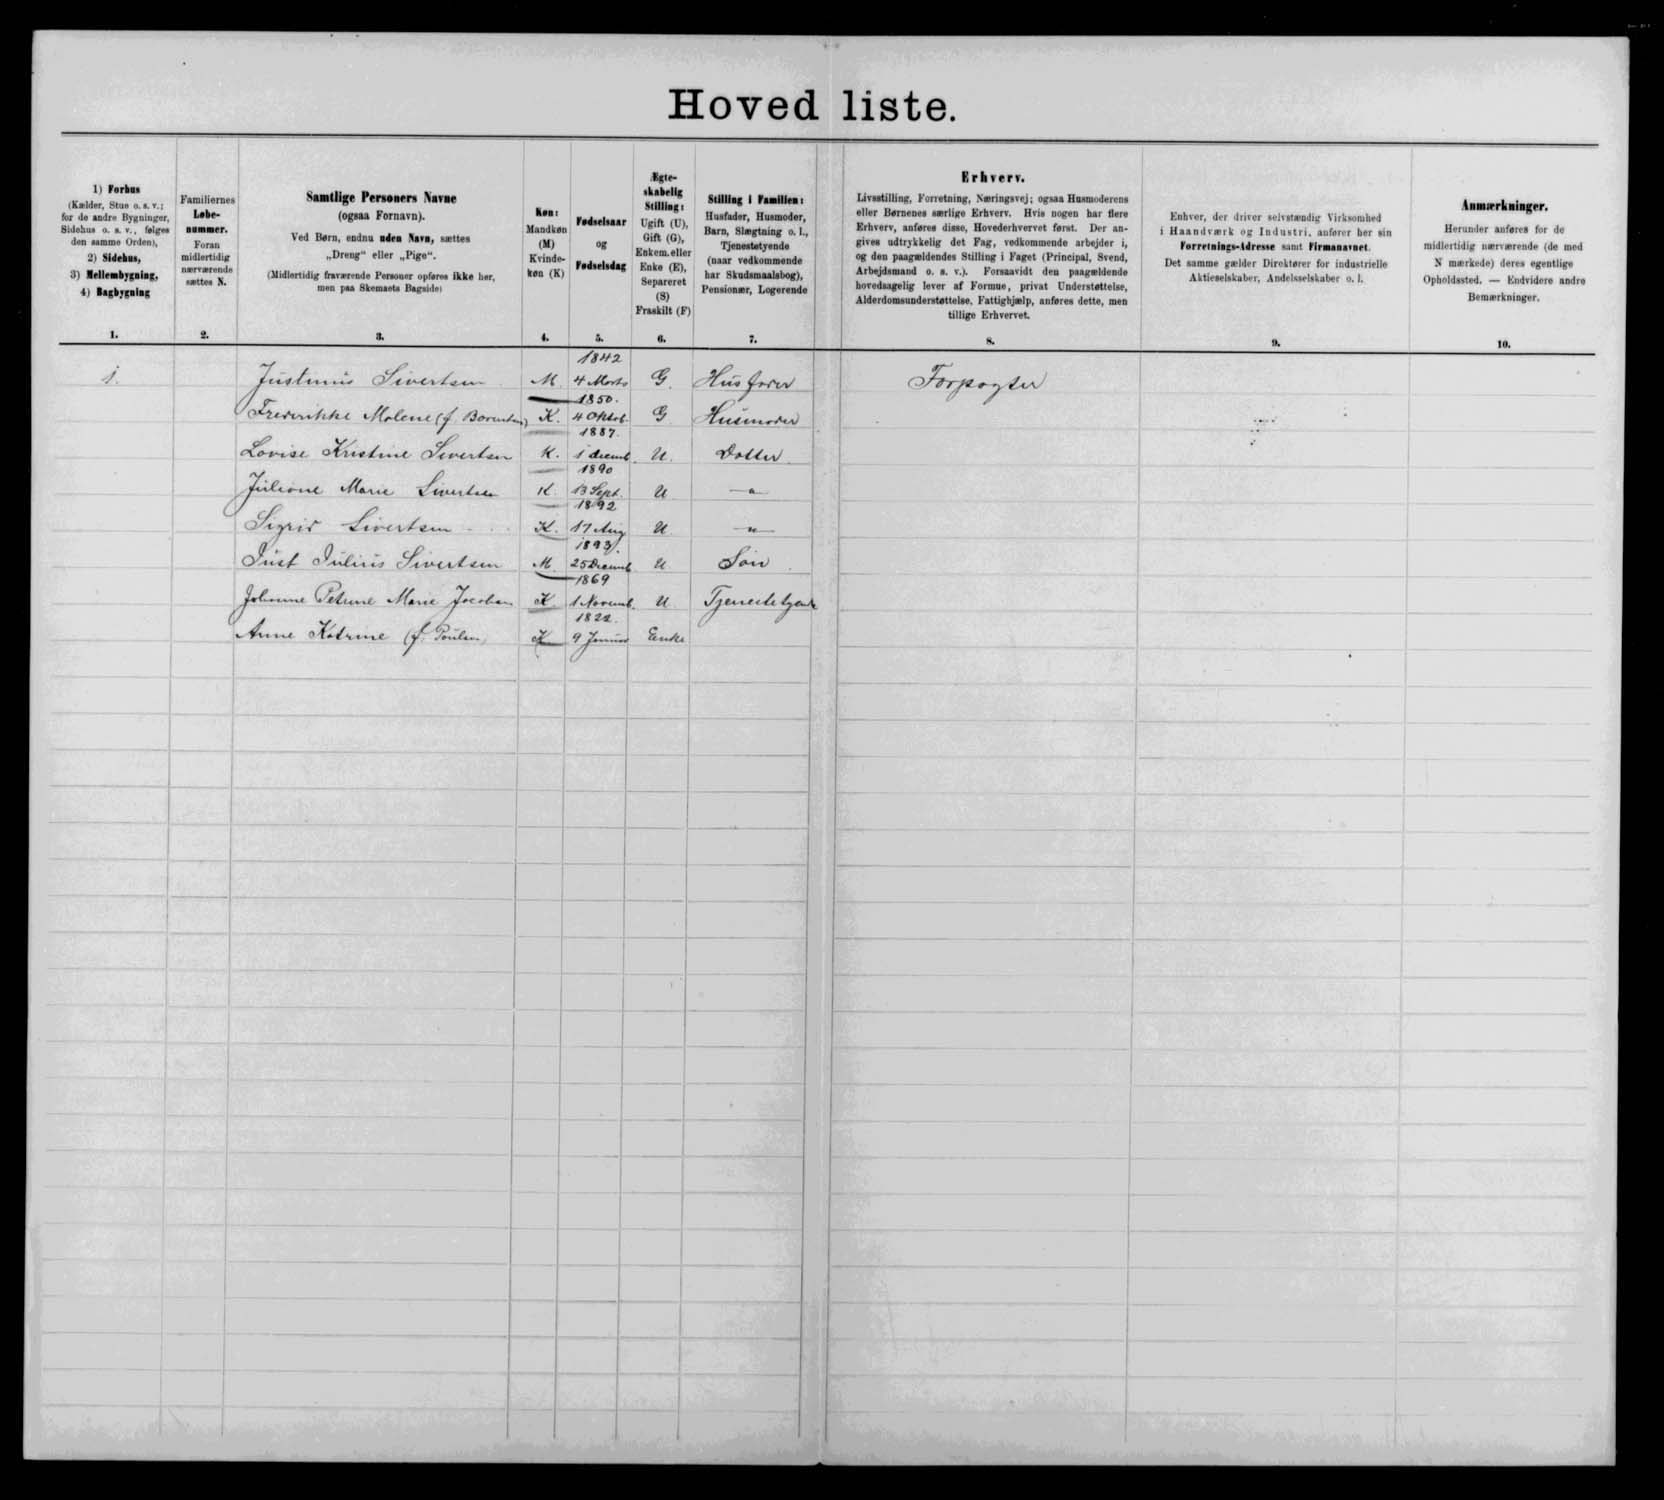 Hovedliste.
1) Forhus
(Kælder, Stue o. s. v.;
for de andre Bygninger,
Sidehus o. s. v., følges
den samme Orden),
2) Sidehus,
3) Mellembygning,
4) Bagbygning
1.
Familiernes
Løbe-
nummer.
Foran
midlertidig
nærværende
sættes N.
2.
Samtlige Personers Navne
(ogsaa Fornavn).
Ved Børn, endnu uden Navn, sættes
„Dreng“ eller „Pige“.
(Midlertidig fraværende Personer opføres ikke her,
men paa Skemaets Bagside)
3.
Køn:
Mandkøn
(M)
Kvinde-
køn (K)
4.
Fødselsaar
og
Fødselsdag
5.
Ægte-
skabelig
Stilling:
Ugift (U),
Gift (G),
Enkem. eller
Enke (E),
Separeret
(S)
Fraskilt (F)
6.
Stilling i Familien:
Husfader, Husmoder,
Barn, Slægtning o. l.,
Tjenestetyende
(naar vedkommende
har Skudsmaalsbog),
Pensionær, Logerende
7.
Erhverv.
Livsstilling, Forretning, Næringsvej; ogsaa Husmoderens
eller Børnenes særlige Erhverv. Hvis nogen har flere
Erhverv, anføres disse, Hovederhvervet først. Der an-
gives udtrykkelig det Fag, vedkommende arbejder i,
og den paagældendes Stilling i Faget (Principal, Svend,
Arbejdsmand o. s. v.). Forsaavidt den paagældende
hovedsagelig lever af Formue, privat Understøttelse,
Alderdomsunderstøttelse, Fattighjælp, anføres dette, men
tillige Erhvervet.
8.
Enhver, der driver selvstændig Virksomhed
i Haandværk og Industri, anfører her sin
Forretnings-Adresse samt Firmanavnet.
Det samme gælder Direktører for industrielle
Aktieselskaber, Andelsselskaber o. l.
9.
Anmærkninger.
Herunder anføres for de
midlertidig nærværende (de med
N mærkede) deres egentlige
Opholdssted. — Endvidere andre
Bemærkninger.
10.
1842
1. Justinus Sivertsen M. 4 Marts G. Husfader Forpagter
1850.
Frederikke Malene (f. Barentsen) K. 4 Oktob. G Husmoder
1887.
Lovise Kristine Sivertsen K. 1 decemb. U. Datter
1890
Juliane Marie Sivertsen K. 13 Sept. U —"—
1892
Sigrid Sivertsen K. 17 Aug U. —"—
1893.
Just Julius Sivertsen M. 25 Decemb. U Søn
1869
Johanne Petrine Marie Jacobsen K. 1 Novemb. U. Tjenestetyende
1822.
Anne Katrine (f. Poulsen) K 9 Januar Enke